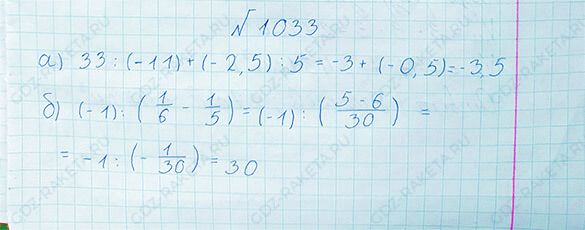 № 1033
а) 33 : (-11) + (-2,5) : 5 = -3 + (-0,5) = -3,5
б) (-1) : (1/6 - 1/5) = (-1) : ((5 - 6)/30) =
= -1 : (- 1/30) = 30
GDZ-RAKETA.RU